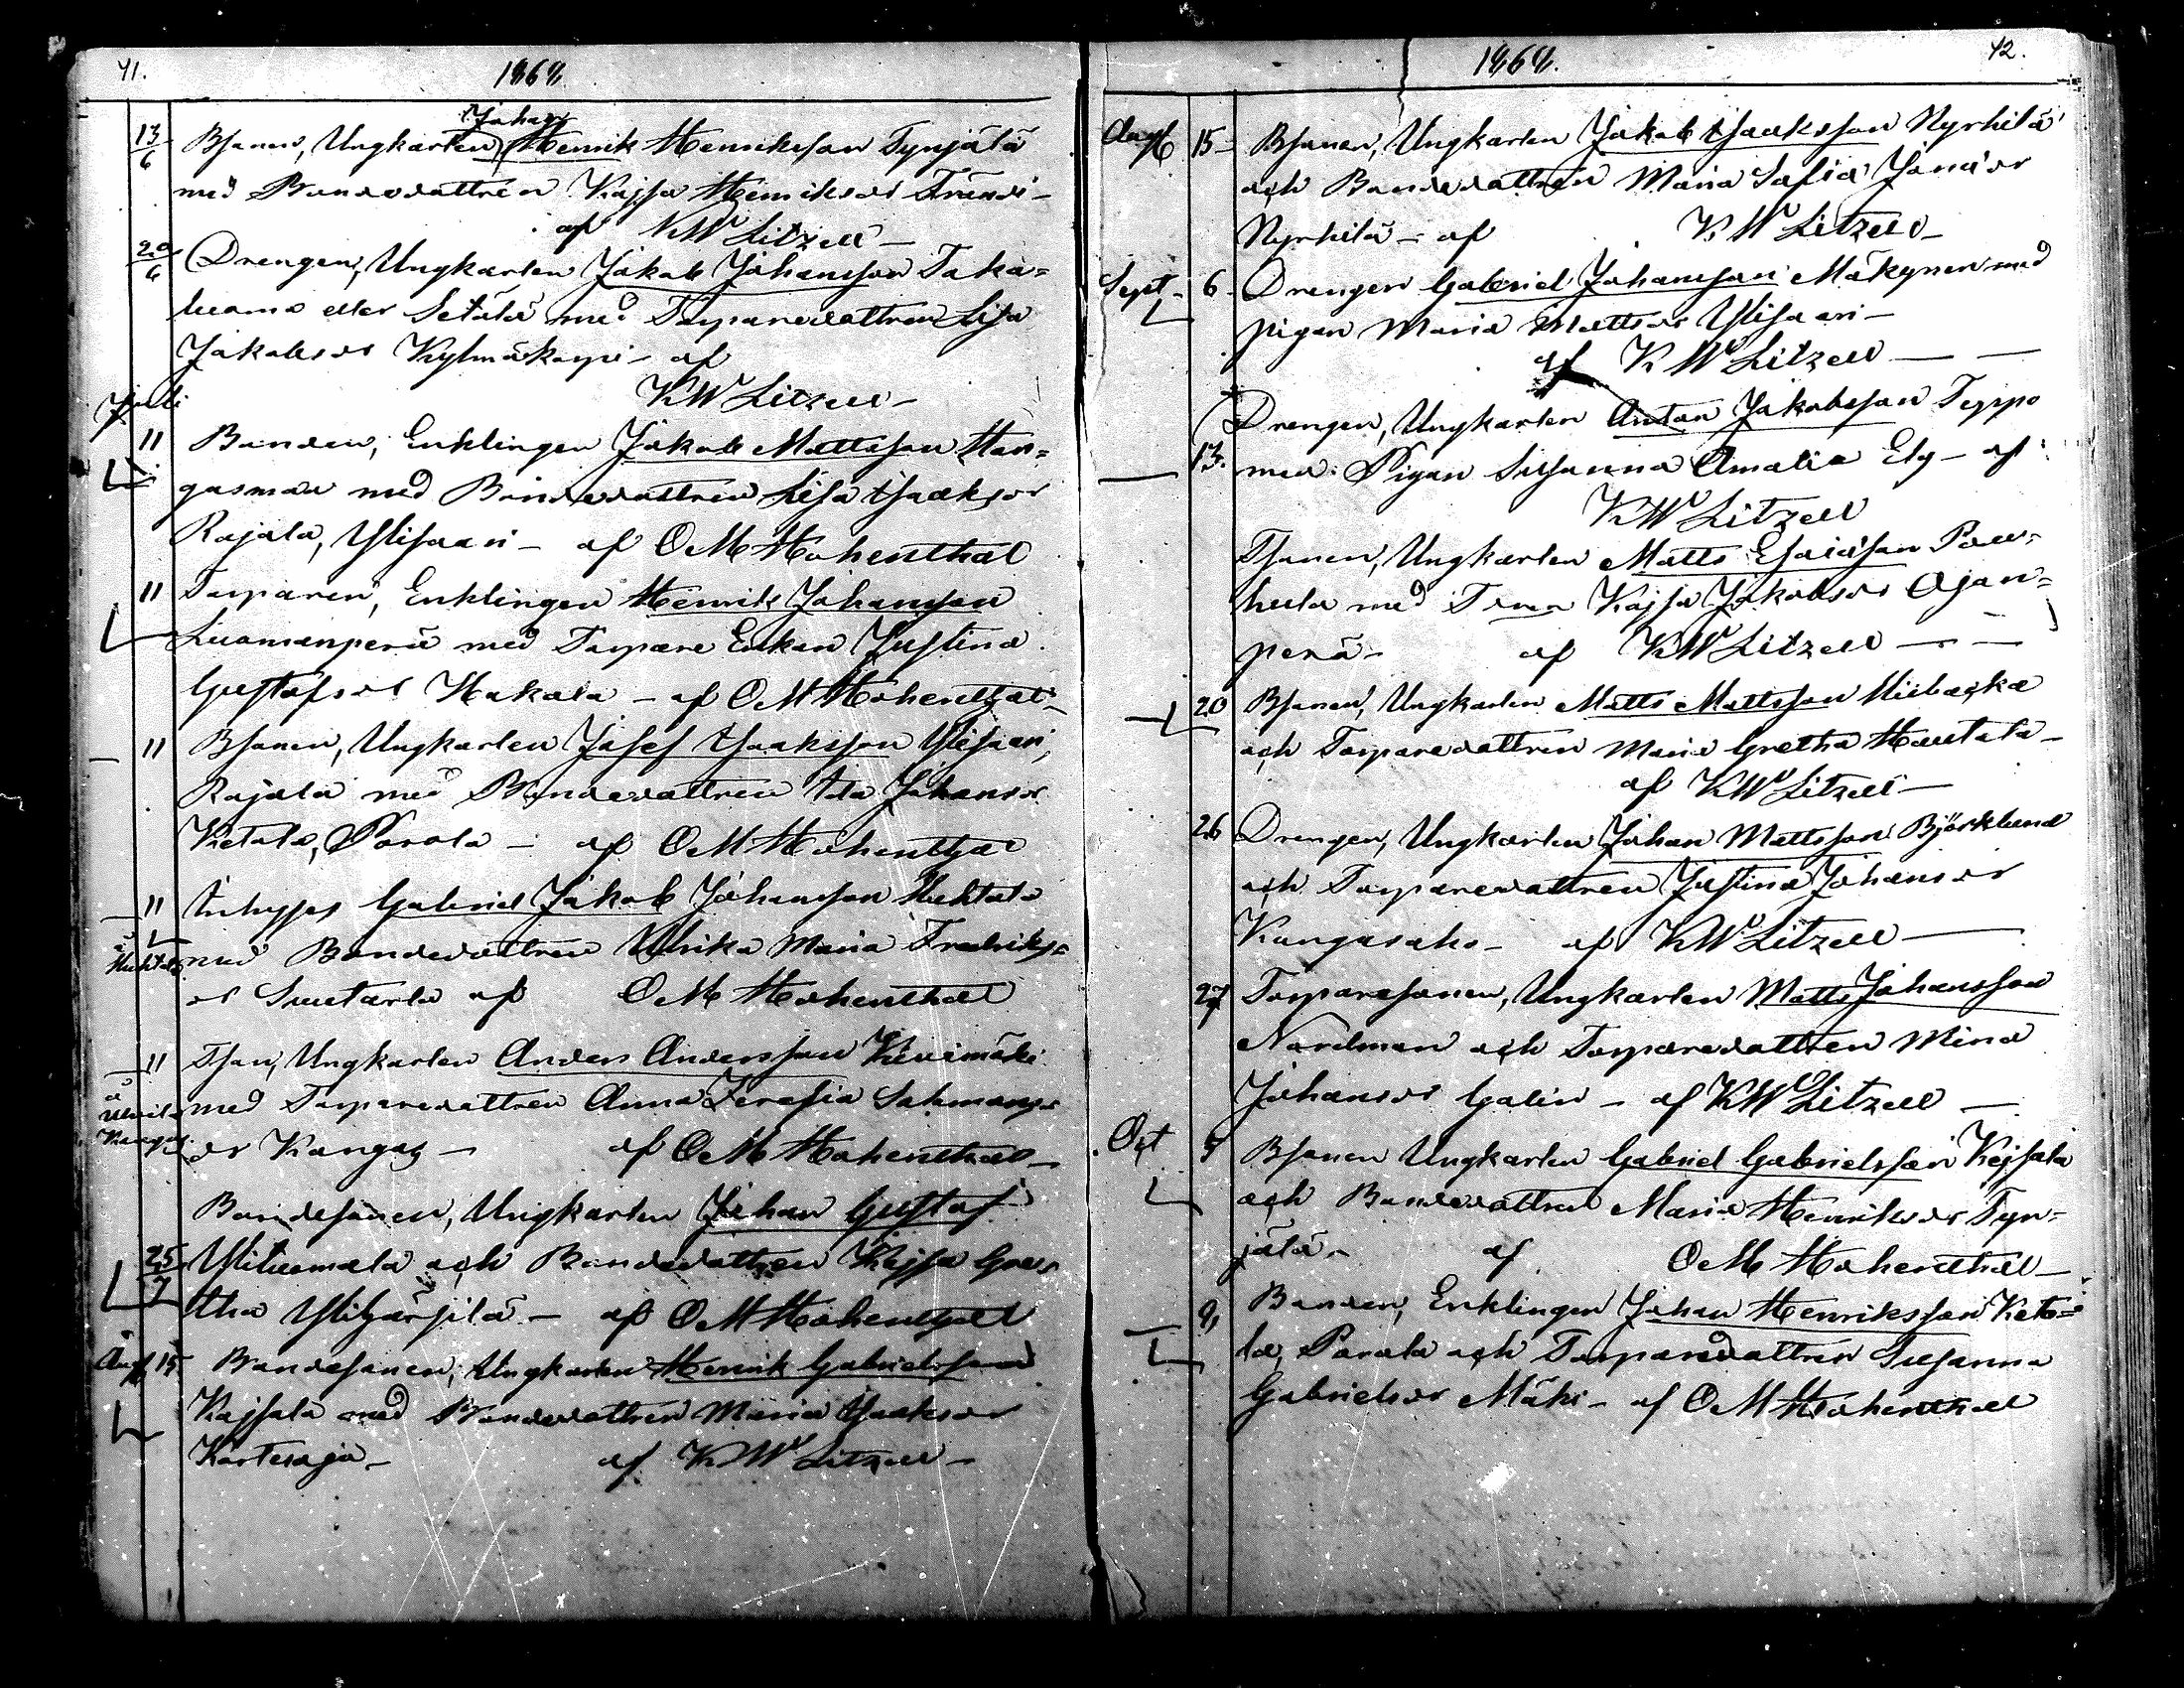 41.
1868.
Johan
13/6 Bsonen, Ungkarlen Henrik Henriksson Tynjälä
med Bondedottren Kajsa Henriksdr
af KW Litzell –
20/6 Drengen, Ungkarlen Jakob Johansson Taka=
luoma eller Setälä med Torparedottren Lisa
Jakobsdr Kylmäkorpi – af
KW Litzell –
Juli
11 Bonden, Enklingen Jakob Mattsson Kan=
gasmaa med Bondedottren Lisa Isaksdr
Rajala, Ylisaari – af OM Hohenthal
11 Torparen, Enklingen Henrik Johansson
Luomanperä med Torpare Enkan Justina
Gustafsdr Hakala – af OM Hohenthal –
11 Bsonen, Ungkarlen Josef Isaksson Ylisaari,
Rajala med Bondedottren Ida Johansdr
Ketola, Porola – af OM Hohenthal
11 Inhyses Gabriel Jakob Johansson Huhtala
med Bondedottren Ulrika Maria Fredriks=
dr af OM Hohenthal
11 Tson, Ungkarlen Anders Andersson Kivimäki
med Torparedottren Anna Serafia Salomons
dr Kangas – af OM Hohenthal –
Bondesonen, Ungkarlen Johan Gustaf
25/7 Yliluomala och Bondedottren Kajsa Gre
tha Ylihärsilä – af OM Hohenthal
Aug 15 Bondesonen, Ungkarlen Henrik Gabrielsson
Kajsala med Bondedottren Maria Isaksdr
Kortesoja – af KW Litzell –
42.
1868.
Aug 15 – Bsonen, Ungkarlen Jakob Isaksson Nyrhilä
och Bondedottren Maria Sofia Jonædr
Nyrhilä – af KW Litzell –
Sept – 6 – Drengen Gabriel Johansson Mäkynen med
pigan Maria Mattsdr Ylisaari –
af KW Litzell –
Drengen, Ungkarlen Anton Jakobsson Teppo
13. med Pigan Susanna Amalia Elg – af
KW Litzell
Tsonen, Ungkarlen Matts Esaiæson Pou=
hula med Kajsa Jakobsdr Ojan=
perä – af KW Litzell –
20 Bsonen, Ungkarlen Matts Mattsson
och Torparedottren Maria Gretha Hautala –
af KW Litzell –
26 Drengen, Ungkarlen Johan Mattsson Björklund
och Torparedottren Justina Johansdr
Kangasaho – af KW Litzell –
27 Torparesonen, Ungkarlen Matts Johansson
Nordman och Torparedottren Mina
Johansdr Galin – af KW Litzell –
Oct Bsonen Ungkarlen Gabriel Gabrielsson Kejsala
och Bondedottren Maria Henriksdr Tyn=
jälä – af OM Hohenthal –
Bonden, Enklingen Johan Henriksson Keto=
la, Porola och Torparedottren Susanna
Gabrielsdr Mäki – af OM Hohenthal